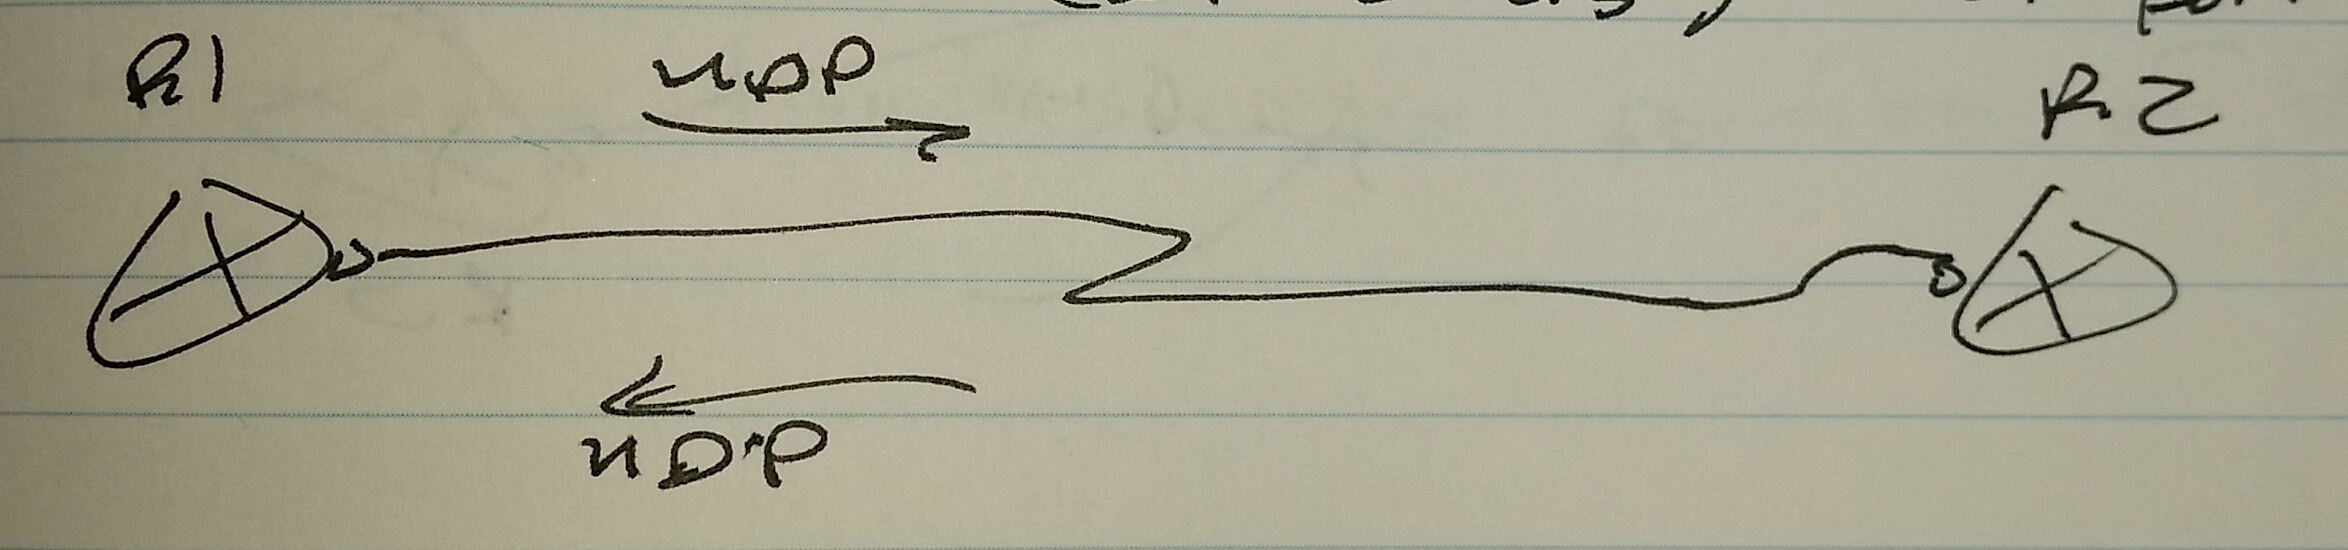 R1
UDP
R2
UDP